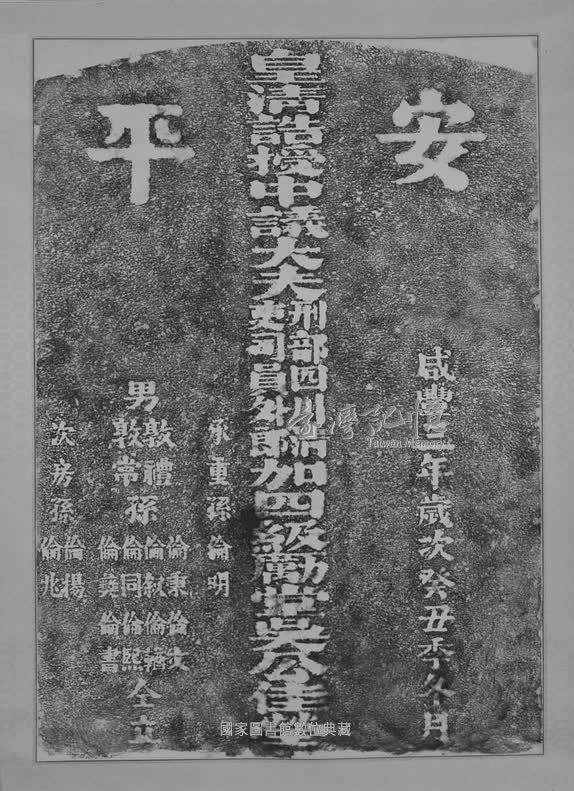 安平
咸豐三年歲次癸丑季冬月
皇清誥授中議大夫刑部四川清吏司員外郎加四級勵堂吳公佳
承重孫倫明
男敦禮敦常孫倫秉倫文倫叙倫同倫熙倫彝倫書仝立
次房孫倫揚倫兆
臺灣記憶
Taiwan Memory
國家圖書館數位典藏